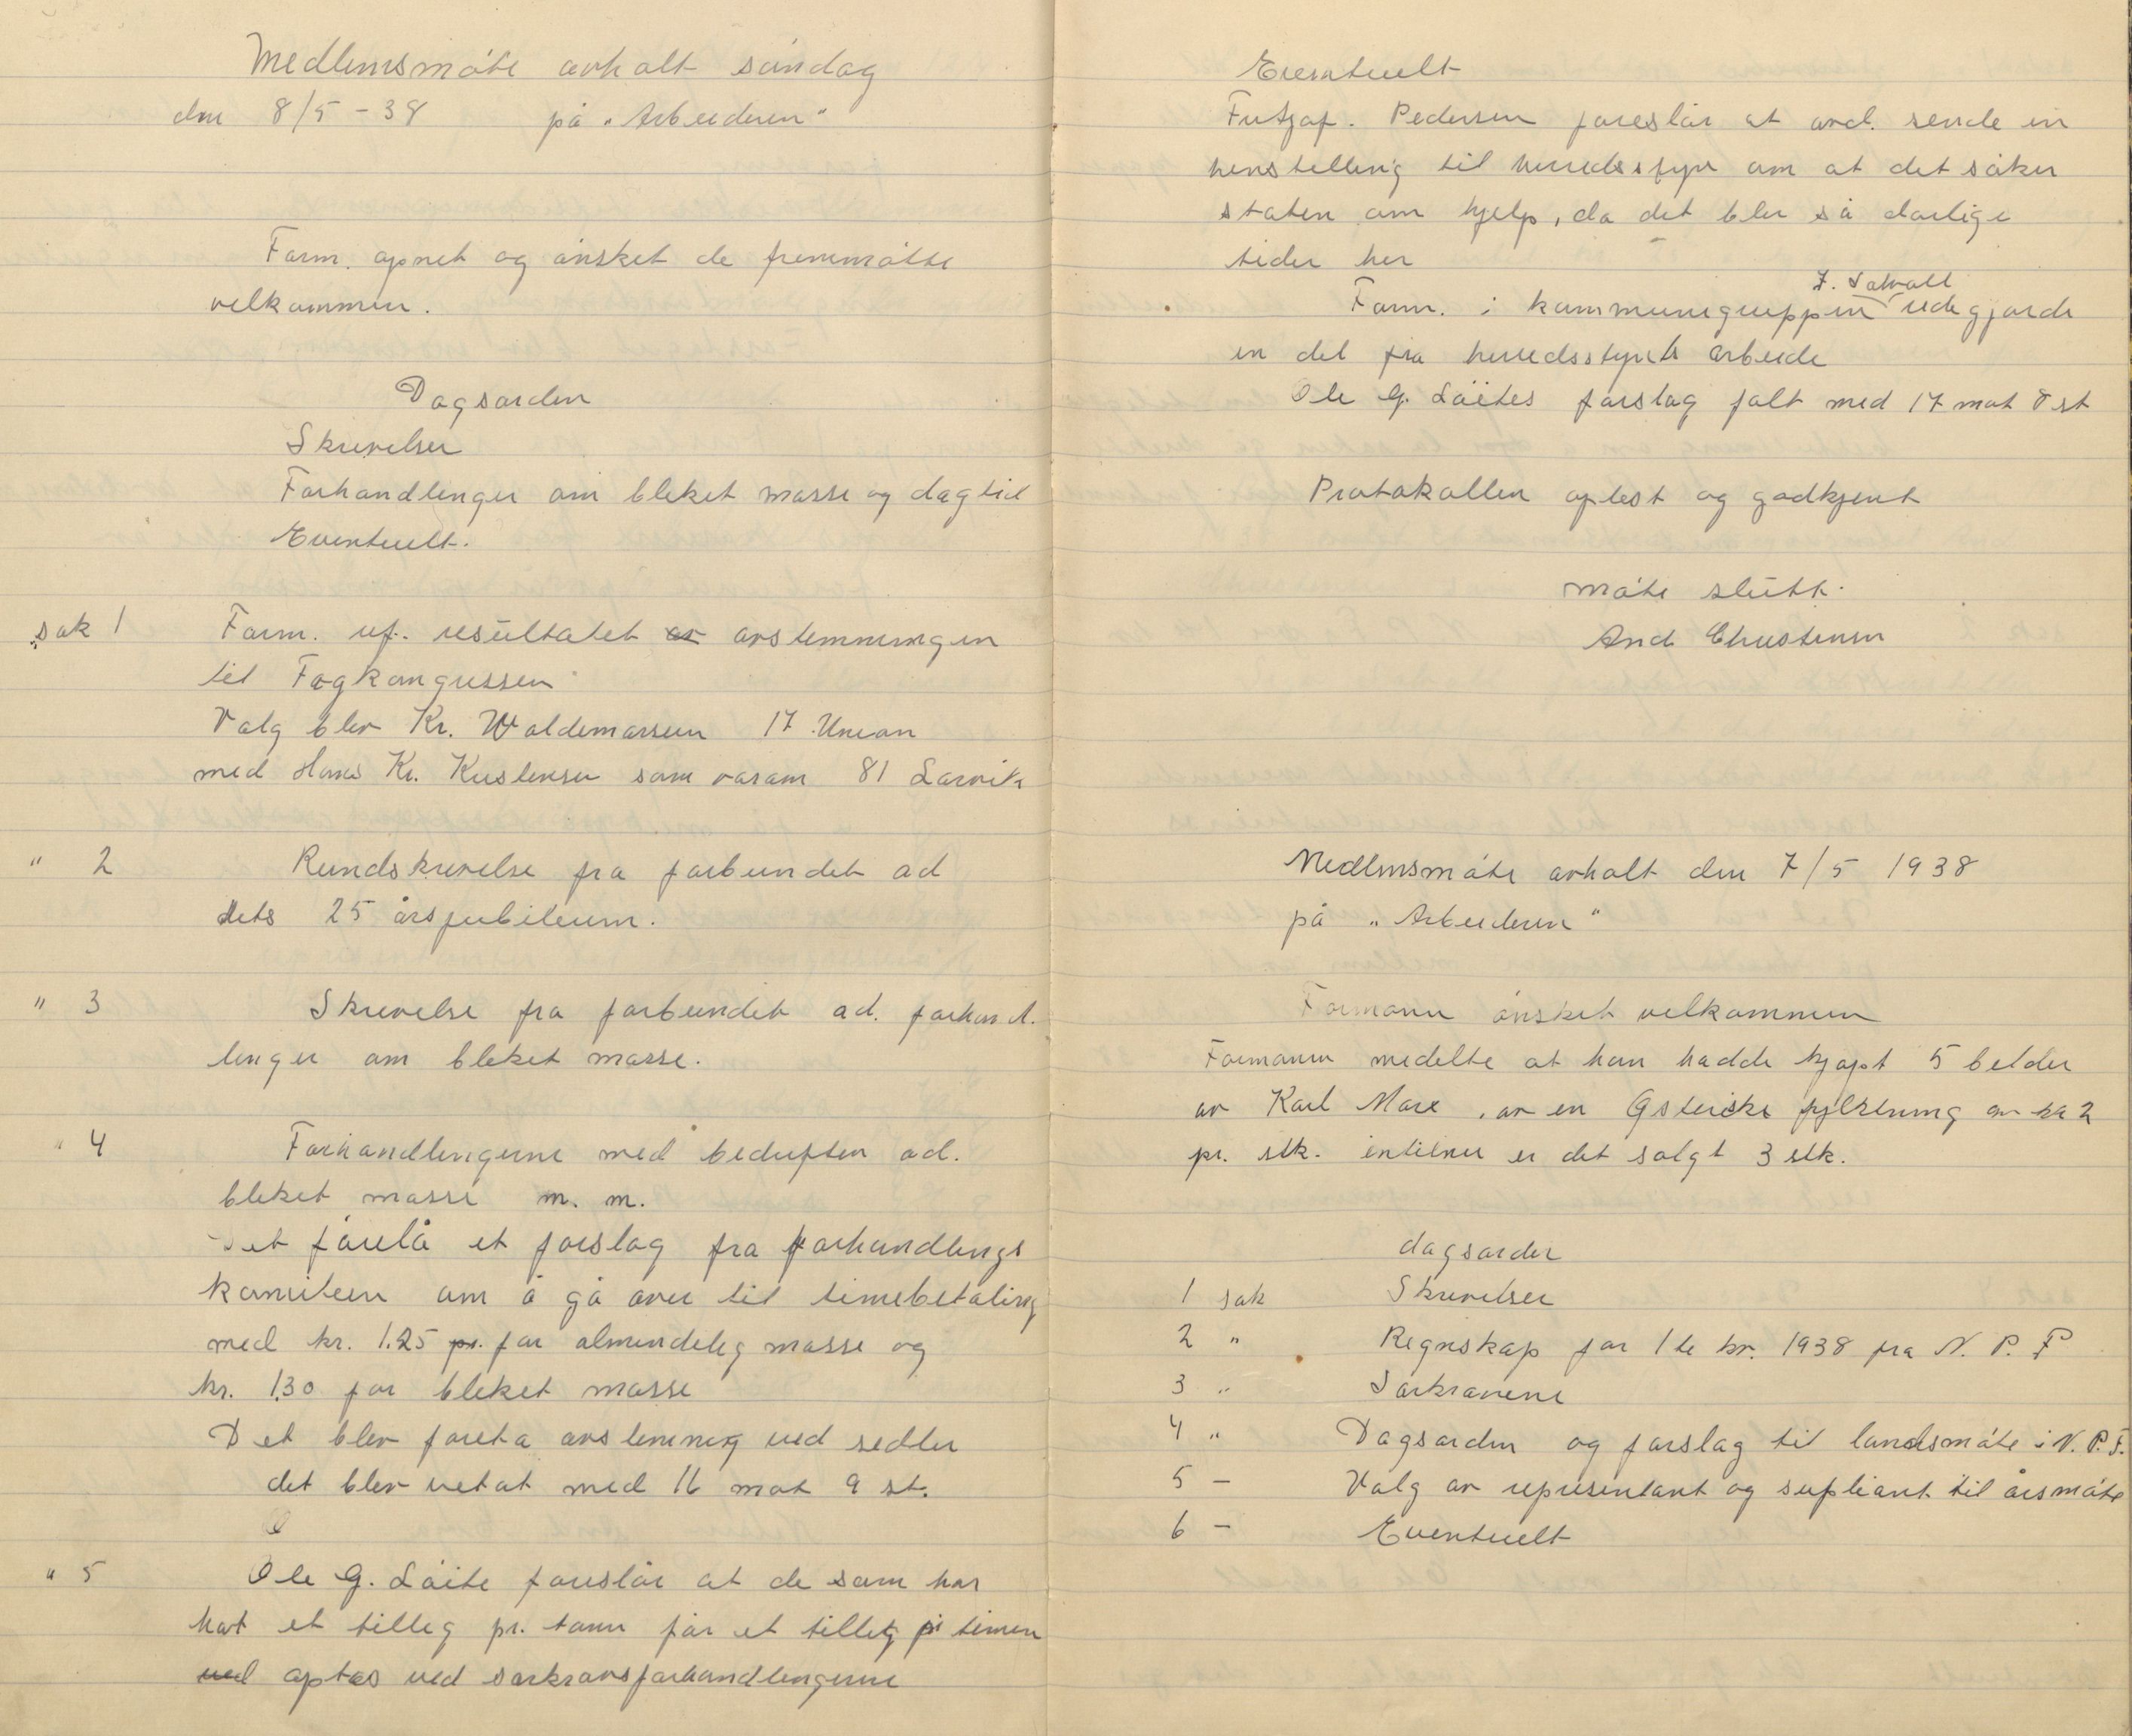 Medlemsmöte avholt söndag
den 8/5 - 38 på "Arbeideren"
Form. åpnet og önsket de fremmötte
velkommen.
Dagsorden
Skrivelser
Forhandlinger om bleket masse og dagtid
Eventuelt.
sak 1 Form. ref. resultatet av avstemningen
til Fagkongressen
Valg blev Kr. Waldemarsen 17 Union
med Hans Kr. Kristensen som varam 81 Larvik
" 2 Rundskrivelse fra forbundet ad
dets 25 årsjubileum.
" 3 Skrivelse fra forbundet ad. forhand.
linger om bleket masse.
" 4 Forhandlingene med bedriften ad.
bleket masse m. m.
Det forelå et forslag fra forhandlings
komiteen om å gå over til timebetaling
med kr. 1.25 pr. for almindelig masse og
kr. 1.30 for bleket masse
Det blev foreta avstemning ved sedler
det blev vetat med 16 mot 9 st.
" 5 Ole G. Löite foreslår at de som har
hat et tilleg pr. tonn får et tilleg på timen
ved optas ved særkravsforhandlingene
Eventuelt
Fritjof. Pedersen foreslår at avd. sende en
henstelling til herredsstyr om at det söker
staten om hjelp, da det blir så dårlige
tider her
Form. i kommunegruppen redegjorde
en del fra herredsstyrets arbeide
Ole G. Löites forslag falt med 17 mot 8 st
Protokollen oplest og godkjent
möte slutt.
And Christensen
Medlemsmöte avholt den 7/5 1938
på "Arbeideren"
Formann önsket velkommen
Formann medelte at han hadde kjöpt 5 belder
av Karl Marx, av en Østeriske flyktning av ka 2
pr. stk. intilnu er det solgt 3 stk.
dagsorder
1 sak Skrivelser
2 " Regnskap for 1te kv. 1938 fra N. P. F
3 " Særkravene
4 " Dagsorden og forslag til landsmöte i N. P. F.
5 - Valg av representant og supliant til årsmöte
6 - Eventuelt